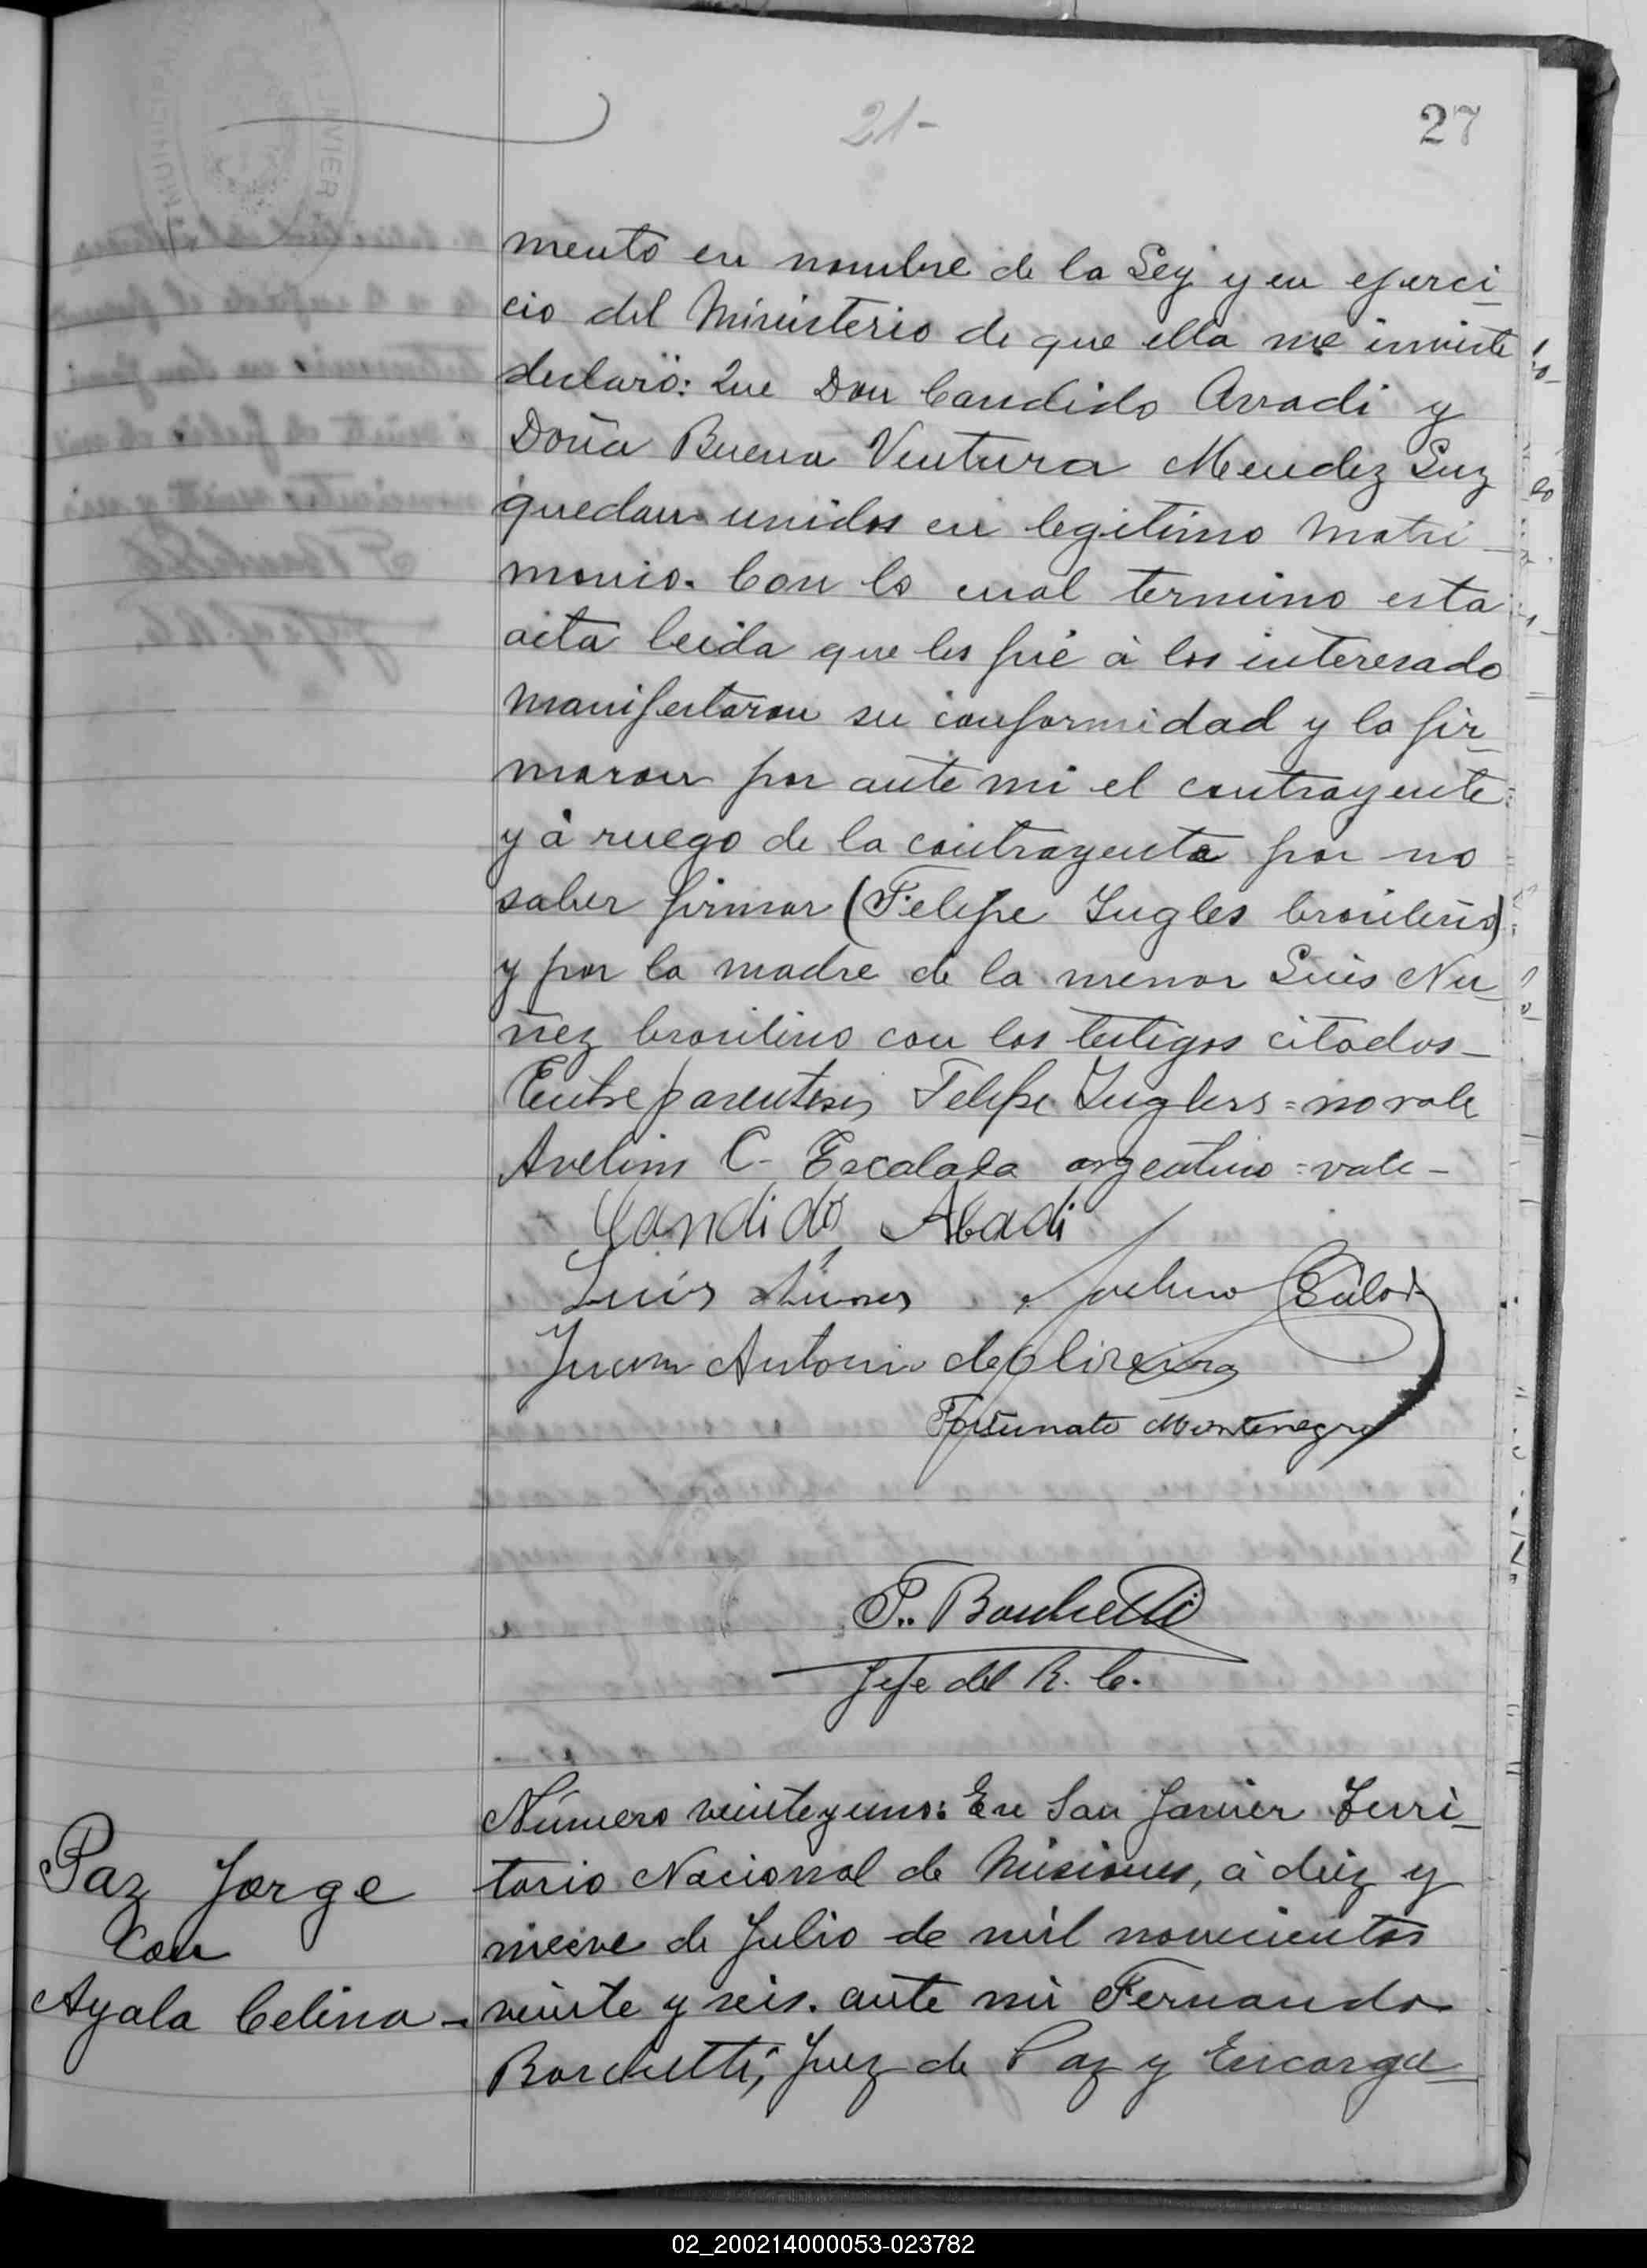 21-
27
mento en nombre de la Ley y en ejerci_
cio del Ministerio de que ella me inviste
declaró: Que Don Candido Avradi y
Doña Buena Ventura Mendez Luz
quedan unidos en legitimo Matri_
monio. Con lo cual termino esta
acta leida que les fué à los interesado
manifestaron su conformidad y la fir_
maron por ante mi el contrayente
y à ruego de la contrayenta por no
saber firmar (Felipe Ingles brasileño)
y por la madre de la menor Luis Nu_
ñez brasilino con los testigos citados_
Entre parentesis Felipe Inglers = no vale
Avelino C. Escalada argentino = vale -
Candido Abadi
Luis Nunes
Juan Antonio de Olireira
Fortunato Montenegro
Jefe del R. C.
Paz Jorge
Con
Ayala Celina -
Número veinteyuno: En San Javier Terri_
torio Nacional de Misiones, à diez y
nueve de Julio de mil novecientos
veinte y seis. ante mi Fernando
Borchetti, Juez de Paz y Encarga_
02_200214000053-023782